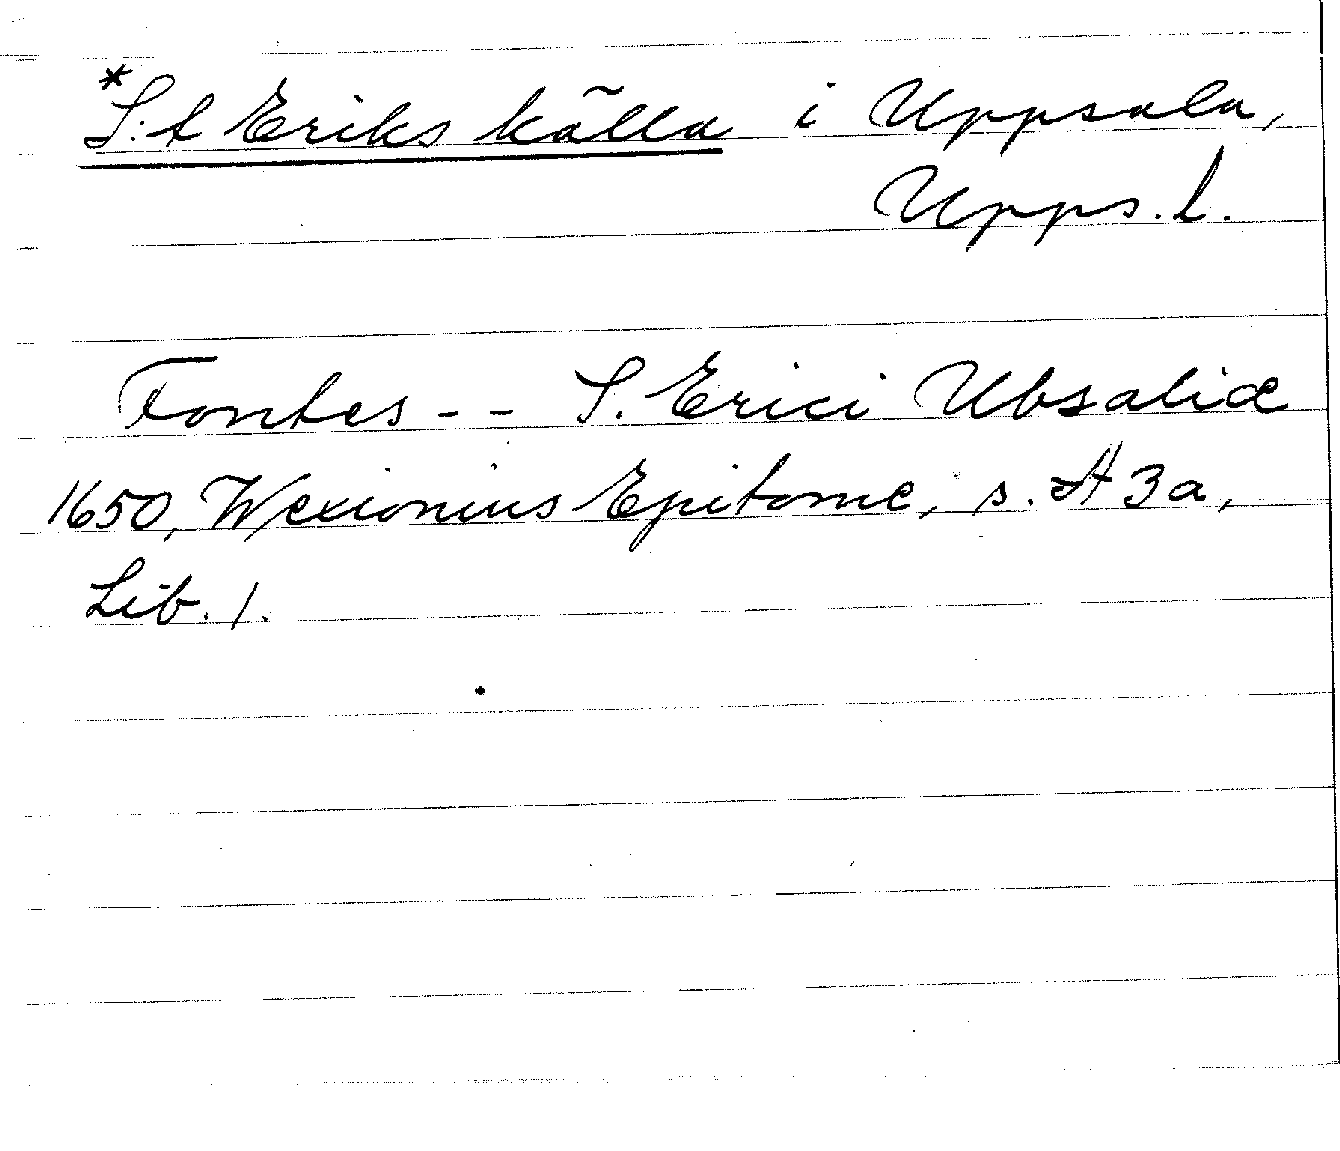 *S:t Eriks källa i Uppsala,
Upps. l.
Fontes - - S. Erici Ubsaliæ
1650, Wexionius Epitome, s. A 3 a,
Lib. 1.